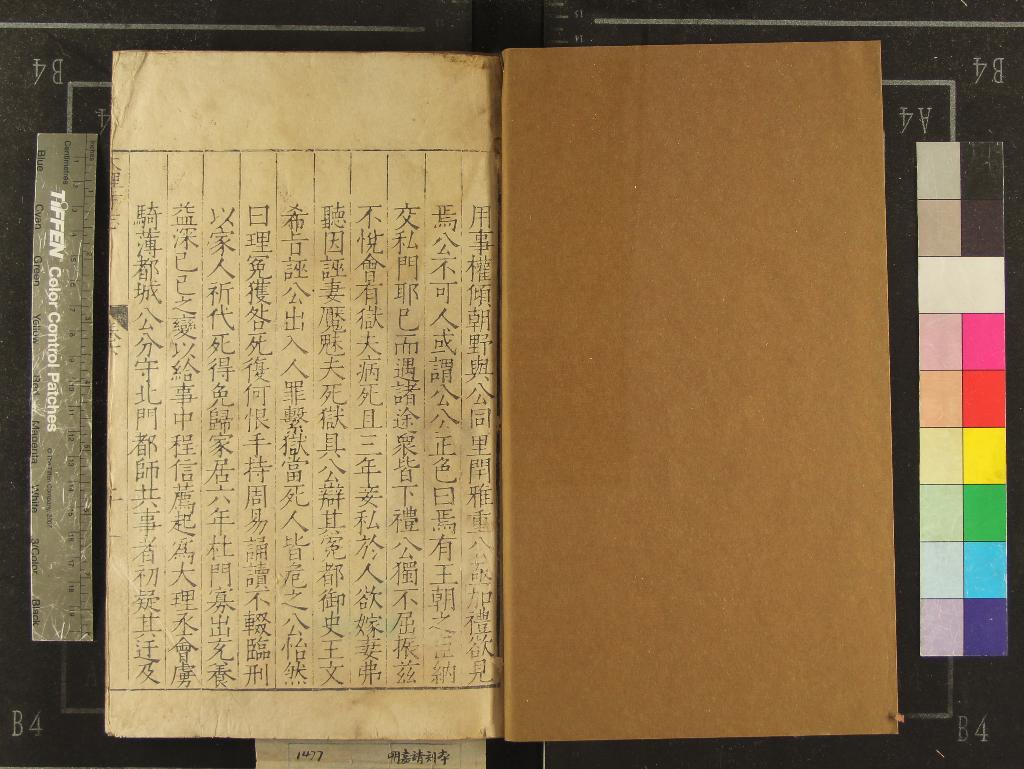 用事權傾朝野與公同里閈雅重公亟加禮欲見
焉公不可人或謂公公正色曰焉有王朝之臣納
交私門耶已而遇諸途衆皆下禮公獨不屈振茲
不悅會有獄夫病死且三年妾私於人欲嫁妻弗
聽因誣妻魘魅夫死獄具公辯其冤都御史王文
希旨誣公出入人罪繫獄當死人皆危之公怡然
曰理冤獲咎死復何恨手持周易誦讀不輟臨刑
以家人祈代死得免歸家居六年杜門寡出充養
益深己巳之變以給事中程信薦起為大理丞會虜
騎薄都城公分守北門都師共事者初疑其迂及
B4
B4
A4
B4
B4
TIFFEN Color Control Patches
© The Tiffen Company, 2007
Centimetres
Inches
Blue
Cyan
Green
Yellow
Red
Magenta
White
3/Color
Black
1477
明嘉靖刻本